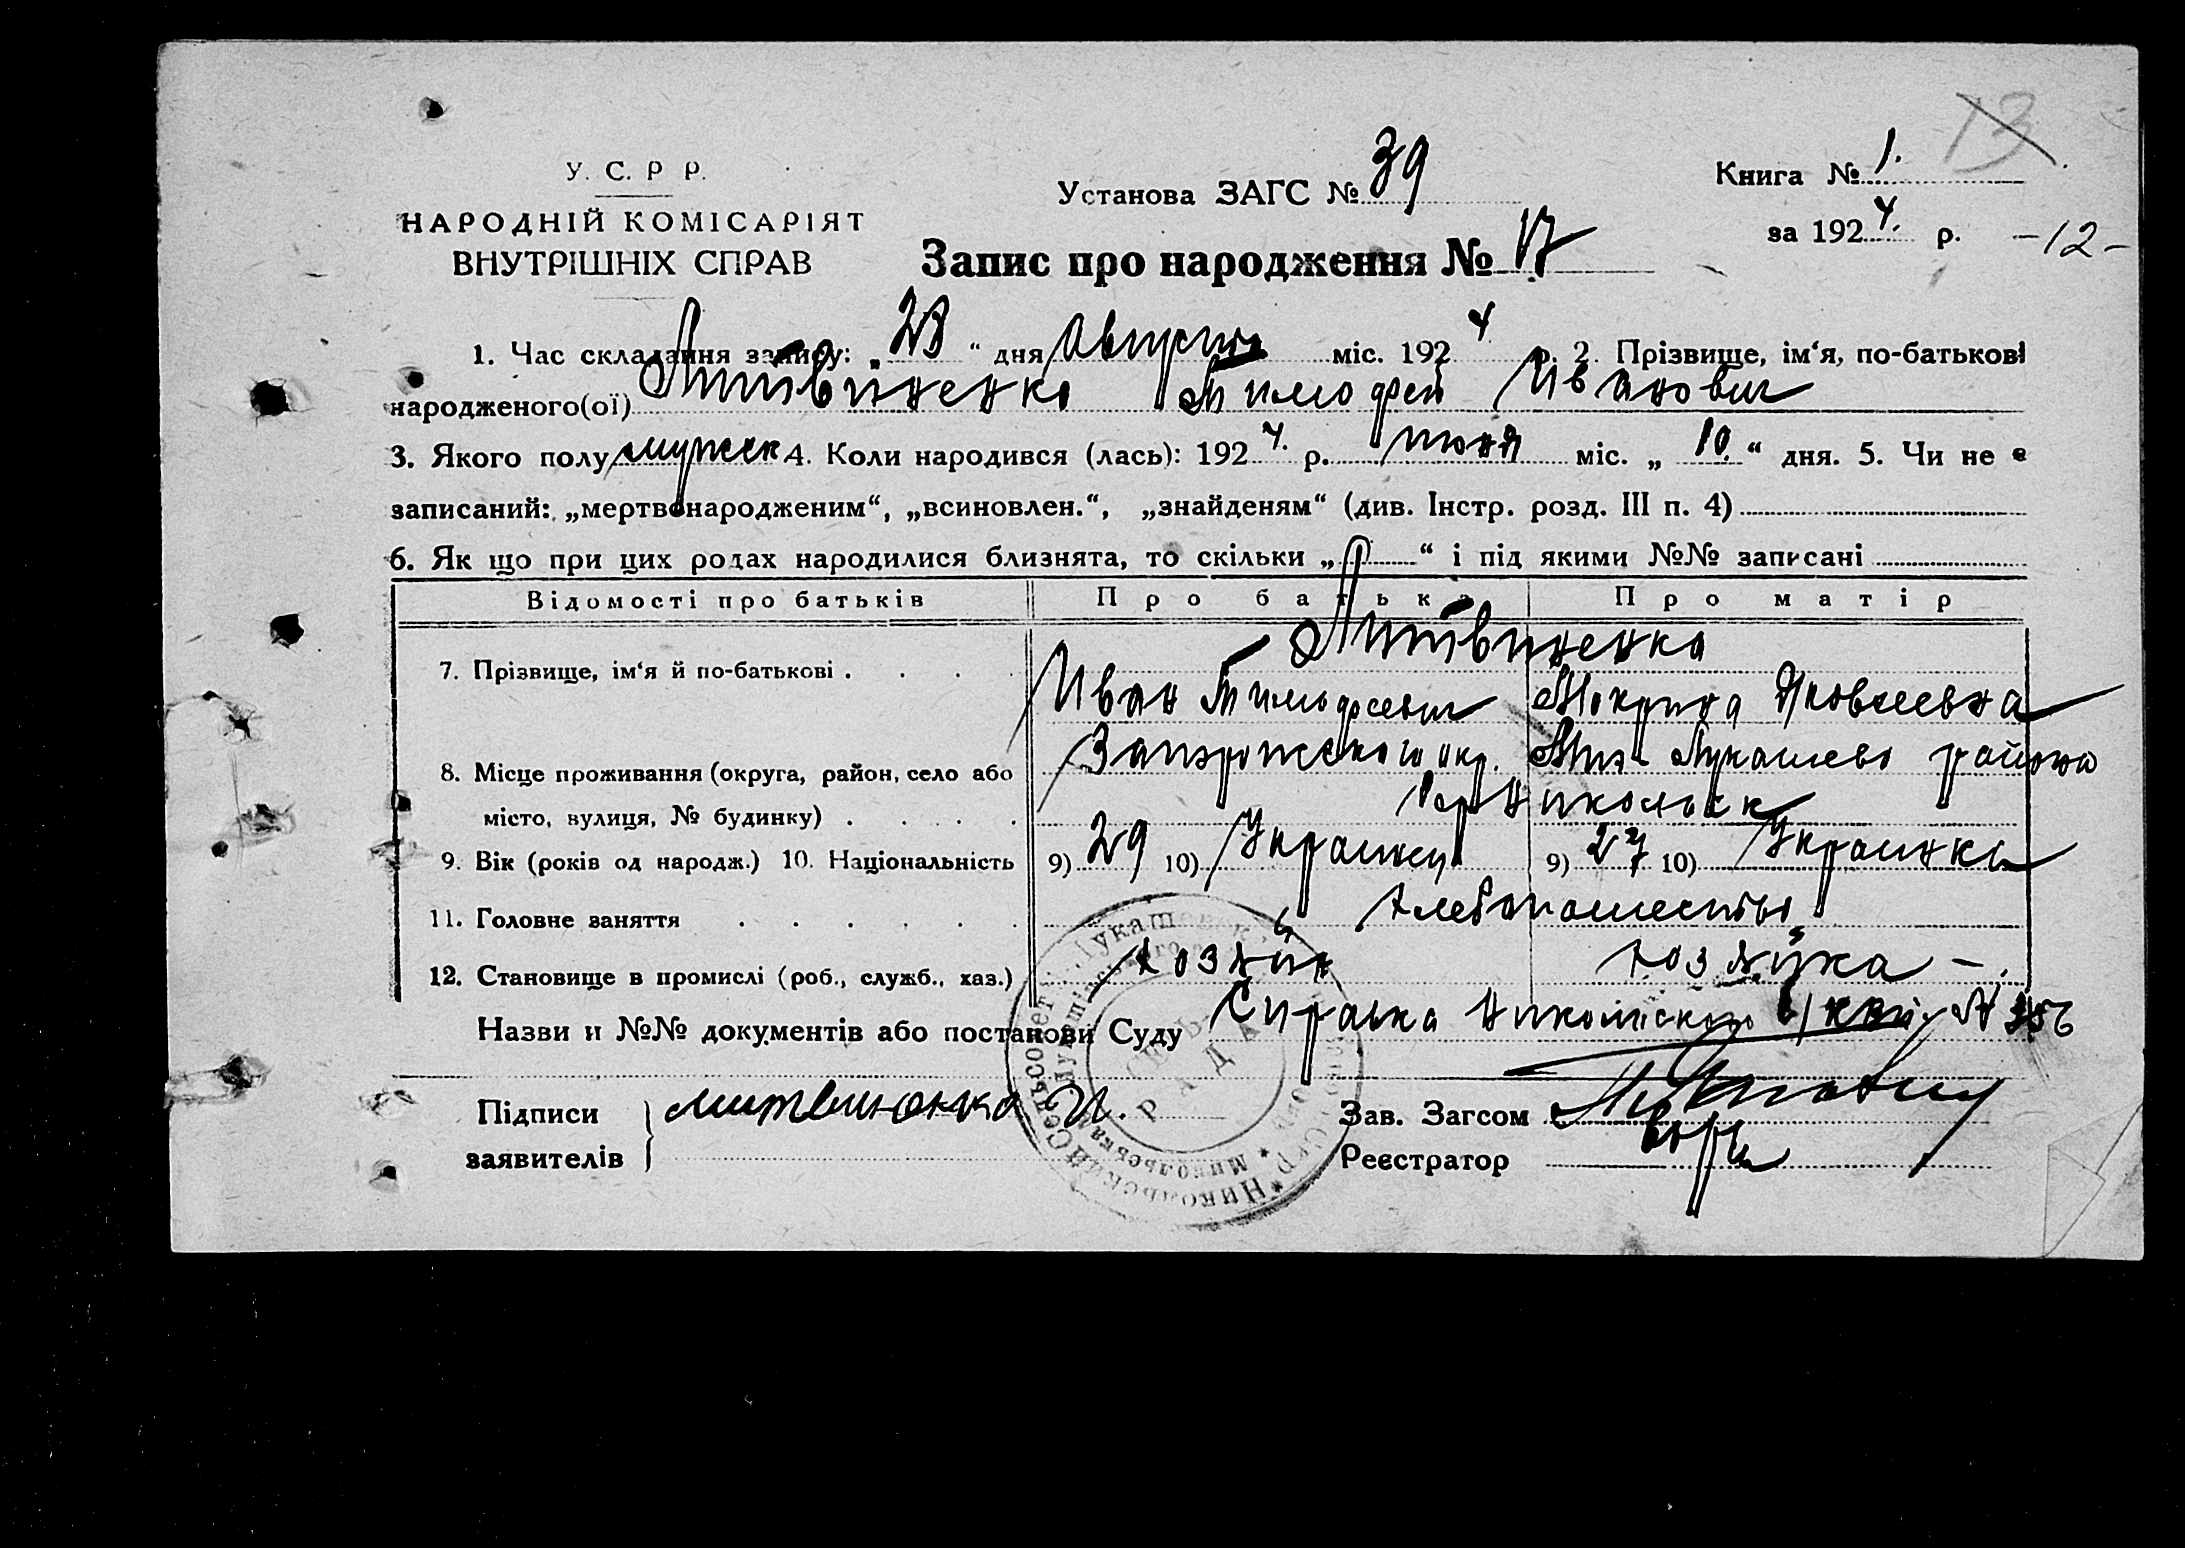 13
У. С. Р Р.
Установа ЗАГС № 39
Книга № 1.
НАРОДНІЙ КОМІСАРІЯТ
за 1924. р. -12-
ВНУТРІШНІХ СПРАВ
Запис про народження № 17
1. Час складання запису: „23“ дня Августа міс. 1924 р. 2. Прізвище, ім‘я, по-батькові
народженого(ої) Литвиненко Тимофей Иванович
3. Якого полу мужск 4. Коли народився (лась): 1924. р. июня міс. „10.“ дня. 5. Чи не є
записаний: „мертвонародженим“, „всиновлен.“, „знайденям“ (див. Інстр. розд. III п. 4)
6. Як що при цих родах народилися близнята, то скільки „ “ і під якими №№ записані
Відомості про батьків Про батька Про матір
Литвиненко
7. Прізвище, ім‘я й по-батькові . . . . Иван Тимофеевич Мокрина Яковлевна
8. Місце проживання (округа, район, село або Запорожского окр. Лукашево района
місто, вулиця, № будинку) . . . . Никольск
9. Вік (років од народж.) 10. Національність 9) 29 10) Украинец 9) 27 10) Украинка
11. Головне заняття . . . . . . Хлебопашество
12. Становище в промислі (роб., служб., хаз.) хозяин хозяйка -.
Назви й №№ документів або постанови Суду Справка Никольского №
Підписи
заявителів
Литвиненко И.
Зав. Загсом
Реєстратор
Никольский Сельсовет Лукашевск
Микольська
РАДА